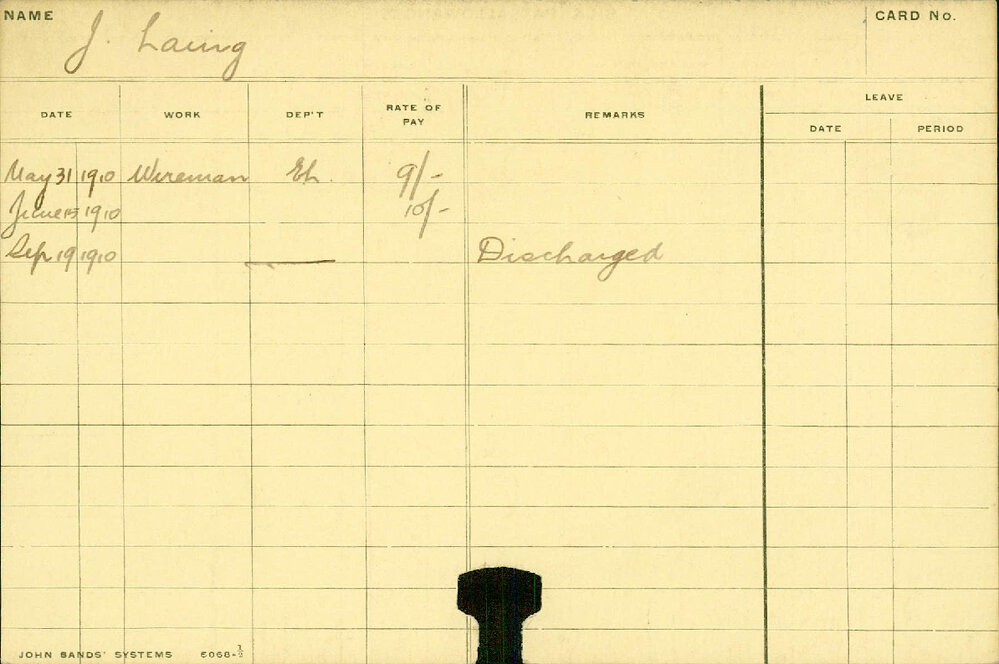 NAME J. Laing CARD No.
DATE WORK DEP'T RATE OF PAY REMARKS LEAVE
DATE PERIOD
May 31 1910 Wireman Eh. 9/-
June 15 1910 10/-
Sep 19 1910 Discharged
JOHN SANDS' SYSTEMS 6068-½